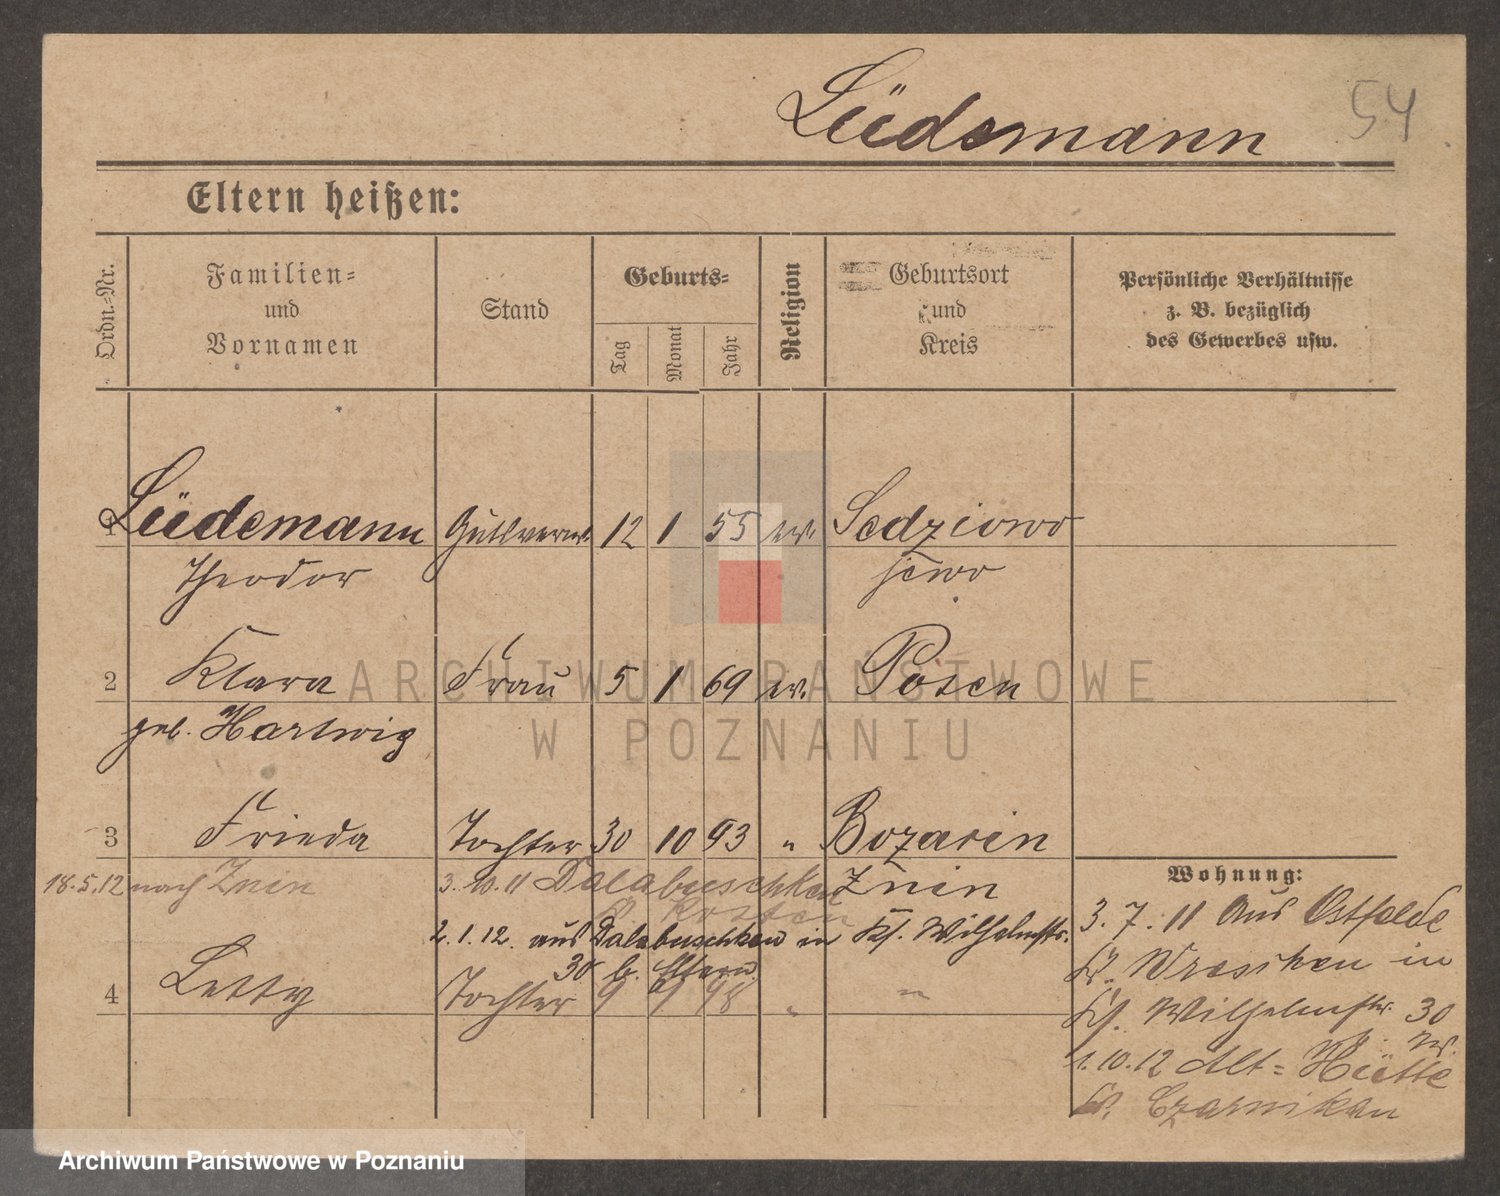 Lüdemann
54
Eltern heißen:
Ordn.-Nr.
Familien-
und
Vornamen
Stand
Geburts-
Tag
Monat
Jahr
Religion
Geburtsort
und
Kreis
Persönliche Verhältnisse
z. B. bezüglich
des Gewerbes usw.
1 Lüdemann Gutsverw. 12 1 55 ev. Sedziowo
Theodor
2 Klara Frau 5 1 69 ev. Posen
geb. Hartwig
3 Frieda Tochter 30 10 93 " Bozacin
18.5.12 nach Znin 3. 10. 11 Dalabuschken Znin
Kr. Kosten
2.1.12. aus Dalabuschken in Hs. Wilhelmstr.
30 b. Eltern
4 Letty Tochter 9 9 98 " "
Wohnung:
3. 7. 11 Aus Ostfelde
Kr. Wreschen in
Wilhelmstr. 30
1. 10. 12 Alt-Hütte
Kr. Czarnikau
ARCHIWUM PAŃSTWOWE
W POZNANIU
Archiwum Państwowe w Poznaniu